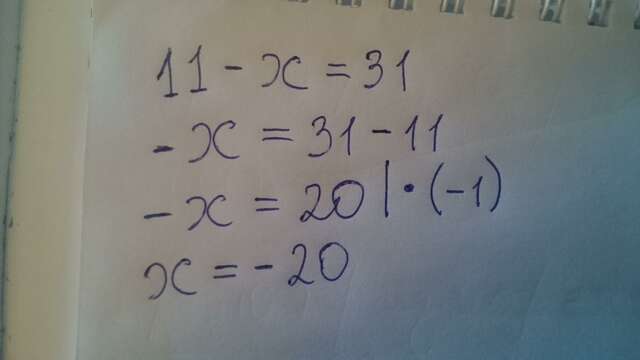 11 - x = 31
- x = 31 - 11
- x = 20 | · (-1)
x = - 20